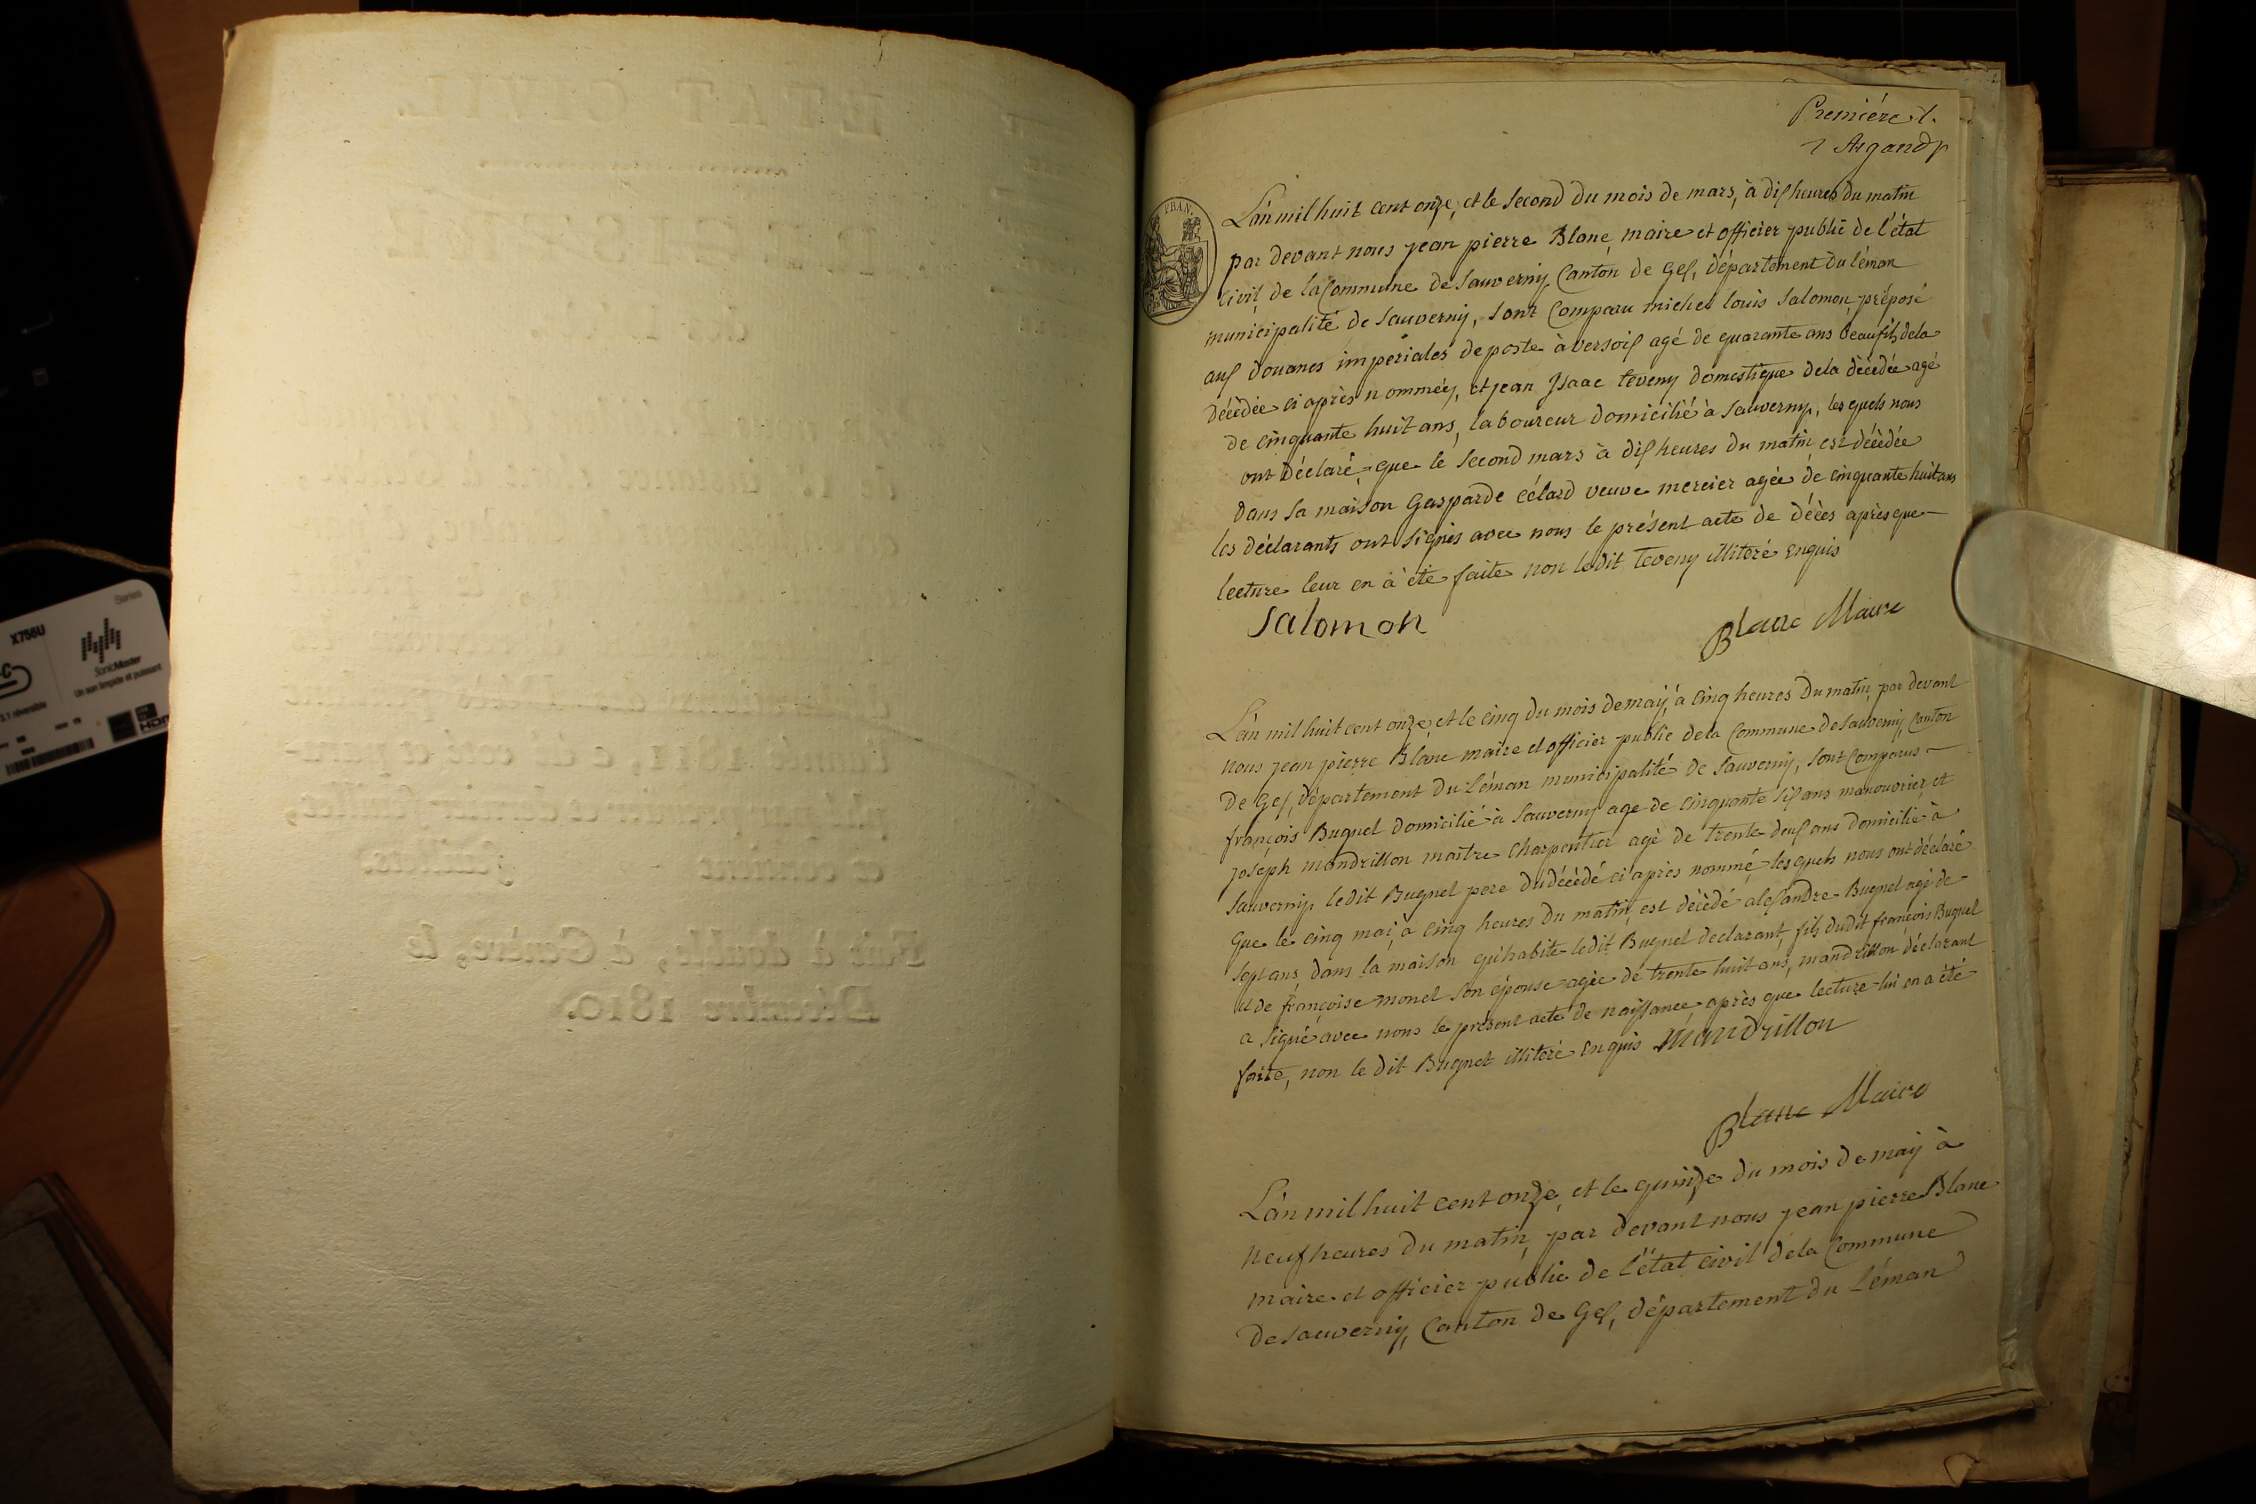 Première f.
Argand p
L'an mil huit cent onze, et le second du mois de mars, à dix heures du matin
par devant nous jean pierre Blanc maire et officier public de l'état
civil de la Commune de Sauverny Canton de Gex, département du léman
municipalité de Sauverny, sont Comparu michel louis Salomon préposé
aux douanes impériales de poste à versoix agé de quarante ans beaufils de la
décédée ci après nommée, et jean Isaac teveny domestique de la décédée agé
de cinquante huit ans, laboureur domicilié à Sauverny, les quels nous
ont déclaré, que le second mars à dix heures du matin est décédée
dans sa maison Gasparde Célard veuve mercier agée de cinquante huit ans
les déclarants ont signés avec nous le présent acte de décès après que
lecture leur en à été faite non ledit Teveny illiteré enquis
Salomon
Blanc Maire
L'an mil huit cent onze, et le cinq du mois de may, à cinq heures du matin, par devant
nous jean pierre Blanc maire et officier public de la Commune de Sauverny Canton
de Gex, département du Léman municipalité de Sauverny, sont Comparus
françois Bugnet domicilié à Sauverny age de cinquante six ans manouvrier, et
joseph mandrillon maître charpentier agé de trente deux ans domicilié à
Sauverny. ledit Bugnet pere du décédé ci après nommé, les quels nous ont déclaré
que le cinq mai, à cinq heures du matin, est décédé alexandre Bugnet agé de
sept ans, dans la maison qu'habite ledit Bugnet declarant, fils dudit françois Bugnet
et de françoise monet son épouse agée de trente huit ans, mandrillon déclarant
a signé avec nous le présent acte de naissance, après que lecture lui en a été
faite, non le dit Bugnet illiteré enquis Mandrillon
Blanc Maire
L'an mil huit cent onze, et le quinze du mois de may à
neuf heures du matin, par devant nous jean pierre Blanc
maire et officier public de l'état civil de la Commune
de Sauverny, Canton de Gex, département du Léman
ETAT CIVIL.
Fait à double, à Genève, le
Décembre 1810.
X756U
Series
SonicMaster
Un son limpide et puissant
3.1 réversible
HDMI
FRAN.